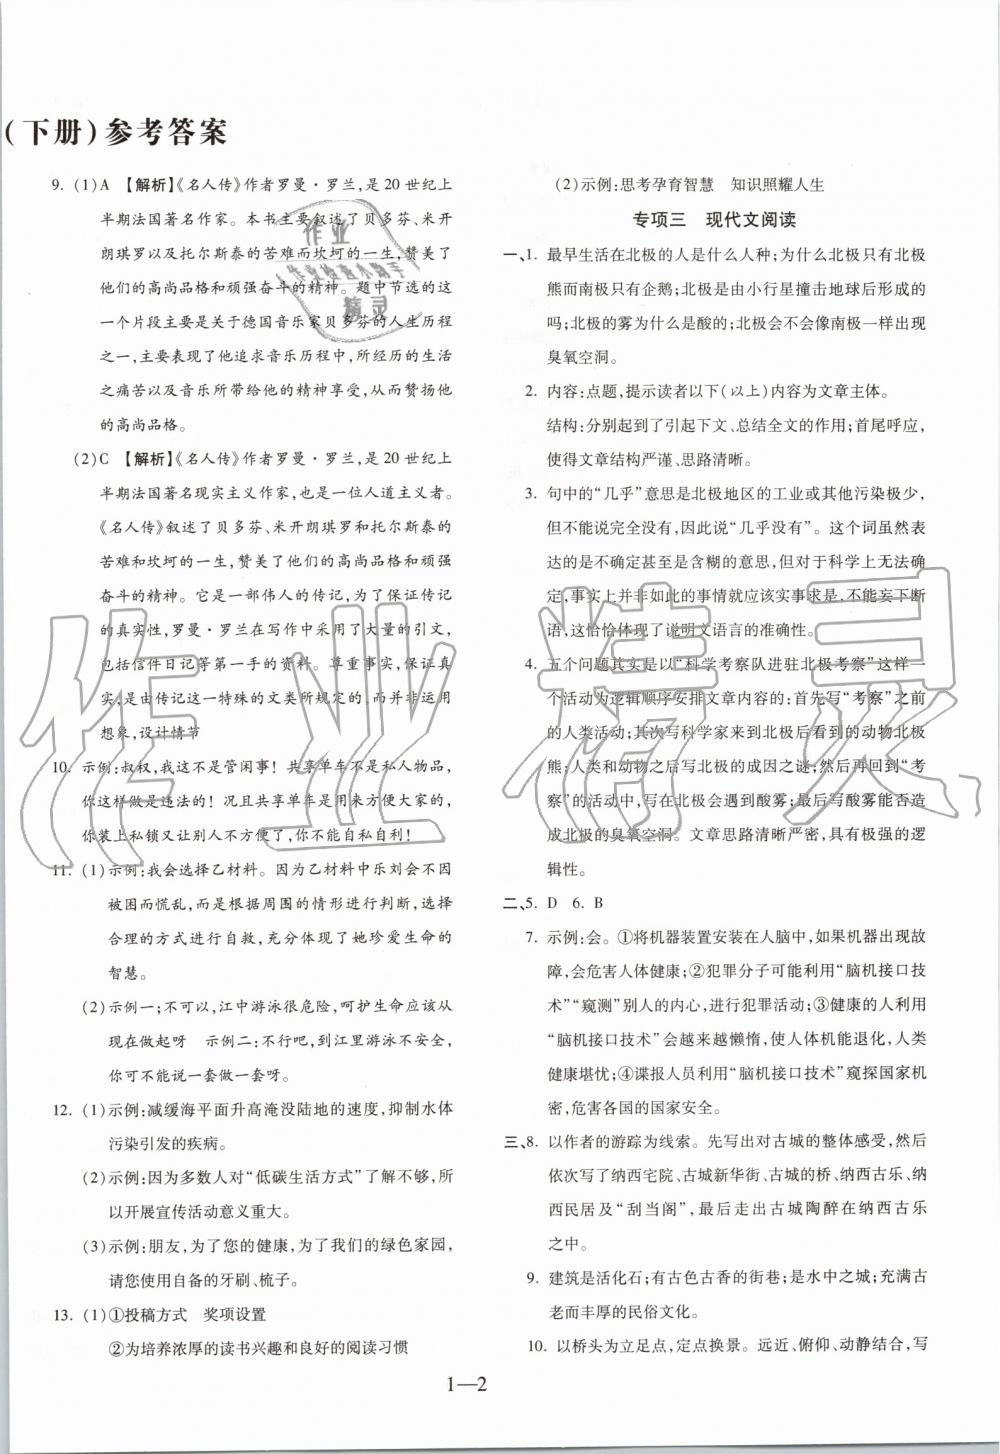 (下册)参考答案
9. (1)A 【解析】《名人传》作者罗曼·罗兰,是20世纪上
半期法国著名作家。本书主要叙述了贝多芬、米开
朗琪罗以及托尔斯泰的苦难而坎坷的一生,赞美了
他们的高尚品格和顽强奋斗的精神。题中节选的这
一个片段主要是关于德国音乐家贝多芬的人生历程
之一,主要表现了他追求音乐历程中,所经历的生活
之痛苦以及音乐所带给他的精神享受,从而赞扬他
的高尚品格。
(2)C 【解析】《名人传》作者罗曼·罗兰,是20世纪上
半期法国著名现实主义作家,也是一位人道主义者。
《名人传》叙述了贝多芬、米开朗琪罗和托尔斯泰的
苦难和坎坷的一生,赞美了他们的高尚品格和顽强
奋斗的精神。它是一部伟人的传记,为了保证传记
的真实性,罗曼·罗兰在写作中采用了大量的引文,
包括信件日记等第一手的资料。尊重事实,保证真
实,是由传记这一特殊的文类所规定的,而并非运用
想象,设计情节
10. 示例:叔权,我这不是管闲事!共享单车不是私人物品,
你这样做是违法的!况且共享单车是用来方便大家的,
你装上私锁又让别人不方便了,你不能自私自利!
11. (1)示例:我会选择乙材料。因为乙材料中乐刘会不因
被困而慌乱,而是根据周围的情形进行判断,选择
合理的方式进行自救,充分体现了她珍爱生命的
智慧。
(2)示例一:不可以,江中游泳很危险,呵护生命应该从
现在做起呀 示例二:不行吧,到江里游泳不安全,
你可不能说一套做一套呀。
12. (1)示例:减缓海平面升高淹没陆地的速度,抑制水体
污染引发的疾病。
(2)示例:因为多数人对“低碳生活方式”了解不够,所
以开展宣传活动意义重大。
(3)示例:朋友,为了您的健康,为了我们的绿色家园,
请您使用自备的牙刷、梳子。
13. (1)①投稿方式 奖项设置
②为培养浓厚的读书兴趣和良好的阅读习惯
(2)示例:思考孕育智慧 知识照耀人生
专项三 现代文阅读
一、1. 最早生活在北极的人是什么人种;为什么北极只有北极
熊而南极只有企鹅;北极是由小行星撞击地球后形成的
吗;北极的雾为什么是酸的;北极会不会像南极一样出现
臭氧空洞。
2. 内容:点题,提示读者以下(以上)内容为文章主体。
结构:分别起到了引起下文、总结全文的作用;首尾呼应,
使得文章结构严谨、思路清晰。
3. 句中的“几乎”意思是北极地区的工业或其他污染极少,
但不能说完全没有,因此说“几乎没有”。这个词虽然表
达的是不确定甚至是含糊的意思,但对于科学上无法确
定,事实上并非如此的事情就应该实事求是,不能妄下断
语,这恰恰体现了说明文语言的准确性。
4. 五个问题其实是以“科学考察队进驻北极考察”这样一
个活动为逻辑顺序安排文章内容的:首先写“考察”之前
的人类活动;其次写科学家来到北极后看到的动物北极
熊;人类和动物之后写北极的成因之谜;然后再回到“考
察”的活动中,写在北极会遇到酸雾;最后写酸雾能否造
成北极的臭氧空洞。文章思路清晰严密,具有极强的逻
辑性。
二、5. D 6. B
7. 示例:会。①将机器装置安装在人脑中,如果机器出现故
障,会危害人体健康;②犯罪分子可能利用“脑机接口技
术”“窥测”别人的内心,进行犯罪活动;③健康的人利用
“脑机接口技术”会越来越懒惰,使人体机能退化,人类
健康堪忧;④谍报人员利用“脑机接口技术”窥探国家机
密,危害各国的国家安全。
三、8. 以作者的游踪为线索。先写出对古城的整体感受,然后
依次写了纳西宅院、古城新华街、古城的桥、纳西古乐、纳
西居民及“刮当阁”,最后走出古城陶醉在纳西古乐
之中。
9. 建筑是活化石;有古色古香的街巷;是水中之城;充满古
老而丰厚的民俗文化。
10. 以桥头为立足点,定点换景。远近、俯仰、动静结合,写
1—2
作业
作业检查小助手
精灵
作业精灵